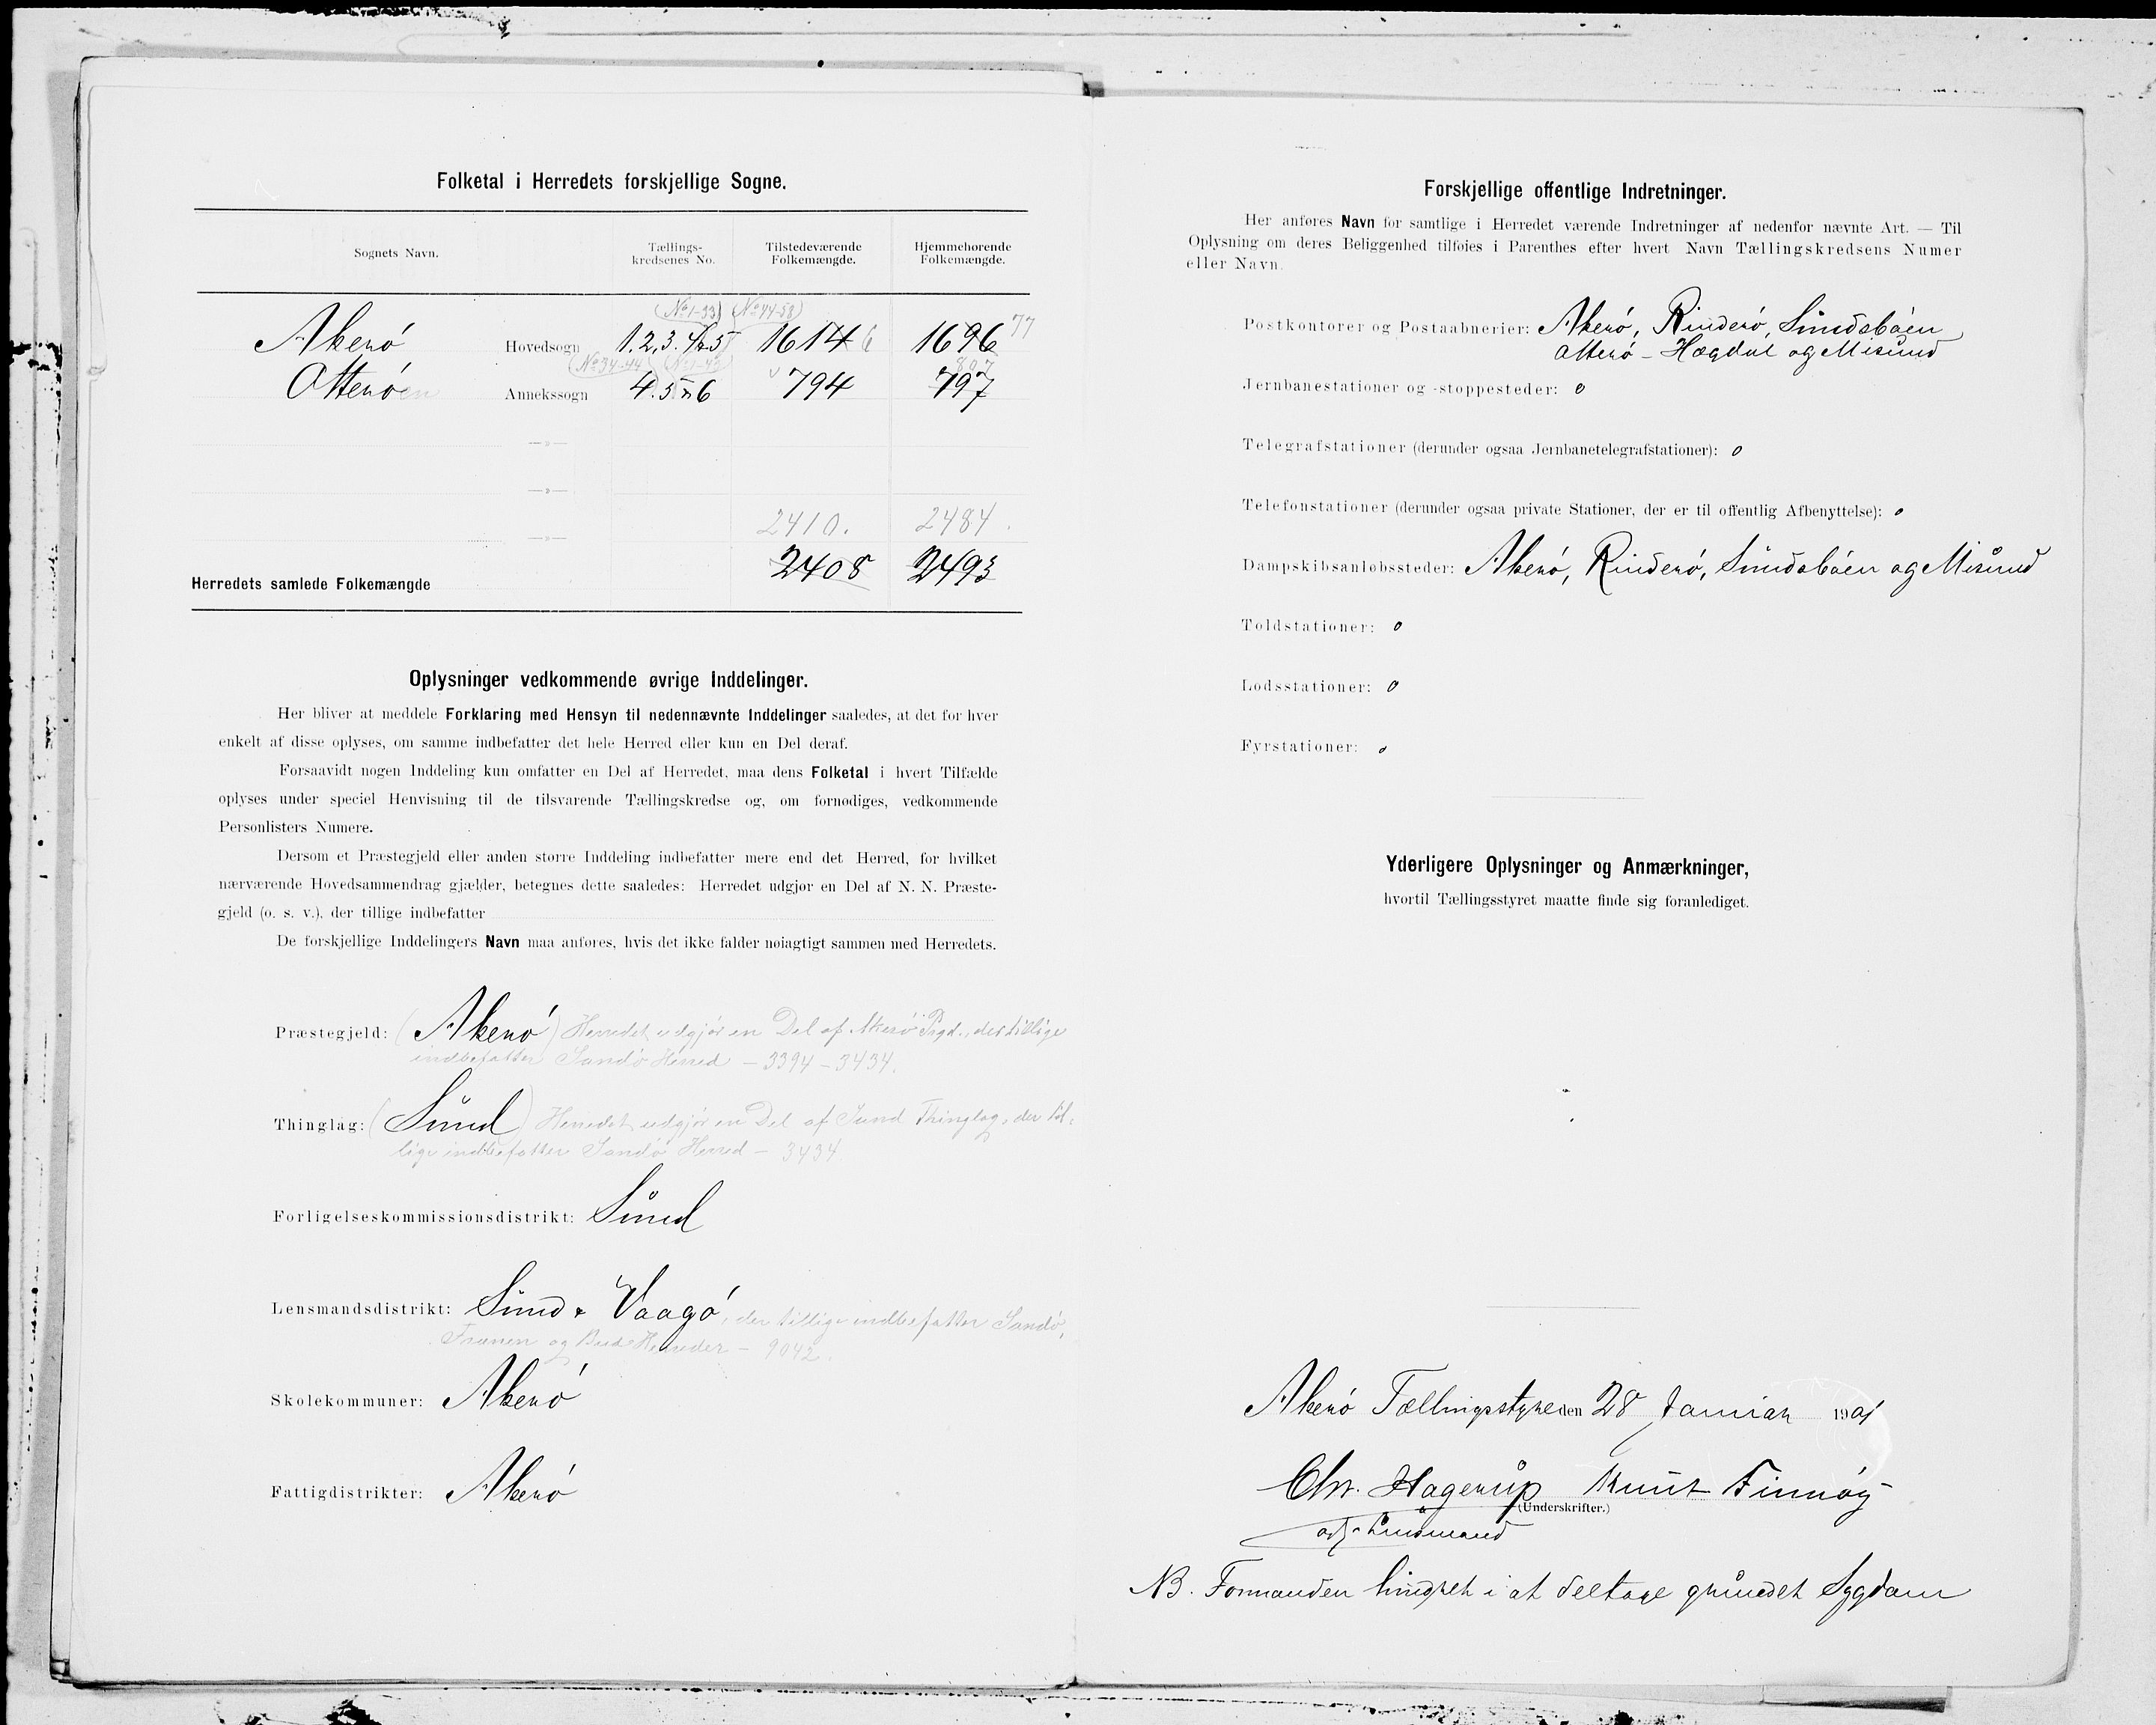 Folketal i Herredets forskjellige Sogne.
Sognets Navn.
Tællings-kredsenes No.
Tilstedeværende Folkemængde.
Hjemmehørende Folkemængde.
(No 1-33) (No 44-58)
Akerø Hovedsogn 1.2.3.4 5 1614 6 1696 77
(No 34-44) 807
Otterøen Annekssogn 4. 5 6 794 797
—»—
—»—
2410. 2484.
—»—
2408 2493
Herredets samlede Folkemængde
Oplysninger vedkommende øvrige Inddelinger.
Her bliver at meddele Forklaring med Hensyn til nedennævnte Inddelinger saaledes, at det for hver
enkelt af disse oplyses, om samme indbefatter det hele Herred eller kun en Del deraf.
Forsaavidt nogen Inddeling kun omfatter en Del af Herredet, maa dens Folketal i hvert Tilfælde
oplyses under speciel Henvisning til de tilsvarende Tællingskredse og, om fornødiges, vedkommende
Personlisters Numere.
Dersom et Præstegjeld eller anden større Inddeling indbefatter mere end det Herred, for hvilket
nærværende Hovedsammendrag gjælder, betegnes dette saaledes: Herredet udgjør en Del af N. N. Præste-
gjeld (o. s. v.), der tillige indbefatter
De forskjellige Inddelingers Navn maa anføres, hvis det ikke falder nøiagtigt sammen med Herredets.
Præstegjeld: (Akerø) Herredet udgjør en Del af Akerø Prgd., der tillige
indbefatter Sandø Herred – 3394 – 3434.
Thinglag: (Sund) Herredet udgjør en Del af Sund Thinglag, der til-
lige indbefatter Sandø Herred – 3434
Forligelseskommissionsdistrikt: Sund
Lensmandsdistrikt: Sund & Vaagø, der tillige indbefatter Sandø,
Frænen og Bud Herreder – 9042.
Skolekommuner: Akerø
Fattigdistrikter: Akerø
Forskjellige offentlige Indretninger.
Her anføres Navn for samtlige i Herredet værende Indretninger af nedenfor nævnte Art. — Til
Oplysning om deres Beliggenhed tilføies i Parenthes efter hvert Navn Tællingskredsens Numer
eller Navn.
Postkontorer og Postaabnerier: Akerø, Rinderø, Sundsbøen
Otterø – Hægdal og Misund
Jernbanestationer og -stoppesteder: 0
Telegrafstationer (derunder ogsaa Jernbanetelegrafstationer): 0
Telefonstationer (derunder ogsaa private Stationer, der er til offentlig Afbenyttelse): 0
Dampskibsanløbssteder: Akerø, Rinderø, Sundsbøen og Misund
Toldstationer: 0
Lodsstationer: 0
Fyrstationer: 0
Yderligere Oplysninger og Anmærkninger,
hvortil Tællingsstyret maatte finde sig foranlediget.
Akerø Tællingsstyre den 28 Januar 1901
Chr. Hagerup Knut Finnøy
(Underskrifter.)
NB. Formanden hindret i at deltage grundet Sygdom